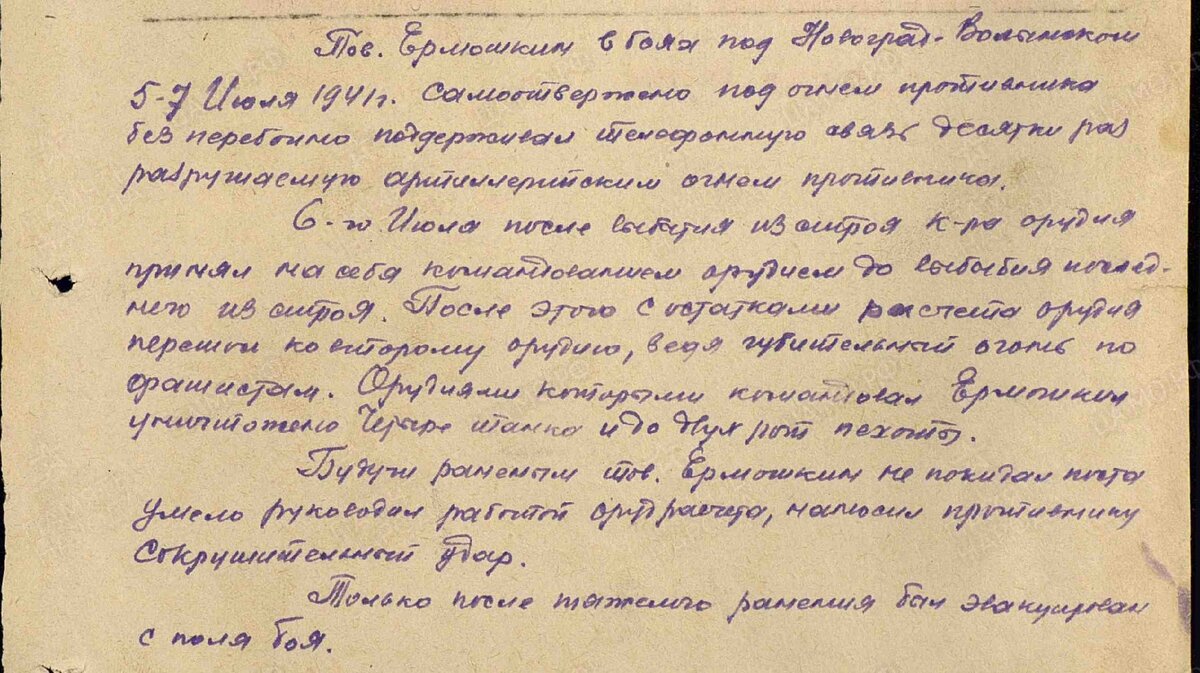 Тов. Ермошкин в боях под Новоград-Волынском
5-7 Июля 1941г. самоотвержено под огнем противника
без перебойно поддерживал телефонную связь десятки раз
разрушаемую артиллерийским огнем противника.
6-го Июля после выбытия из строя к-ра орудия
принял на себя командованием орудием до выбытия послед-
него из строя. После этого с остатками расчета орудия
перешел ко второму орудию, ведя губительный огонь по
фашистам. Орудиями которыми командовал Ермошкин
уничтожено Четыре танка и до двух рот пехоты.
Будучи раненым тов. Ермошкин не покидал поста
умело руководил работой орудрасчета, наносил противнику
сокрушительный удар.
Только после тяжелого ранения был эвакуирован
с поля боя.